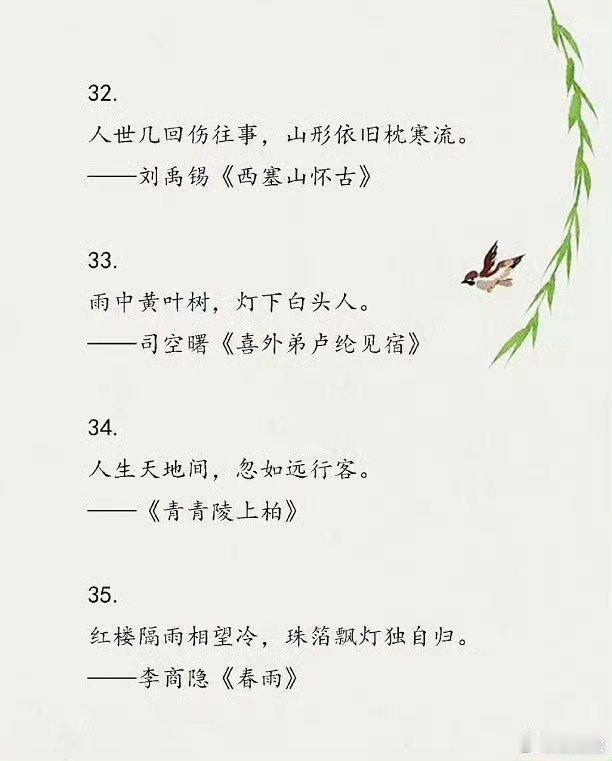 32.
人世几回伤往事，山形依旧枕寒流。
——刘禹锡《西塞山怀古》
33.
雨中黄叶树，灯下白头人。
——司空曙《喜外弟卢纶见宿》
34.
人生天地间，忽如远行客。
——《青青陵上柏》
35.
红楼隔雨相望冷，珠箔飘灯独自归。
——李商隐《春雨》